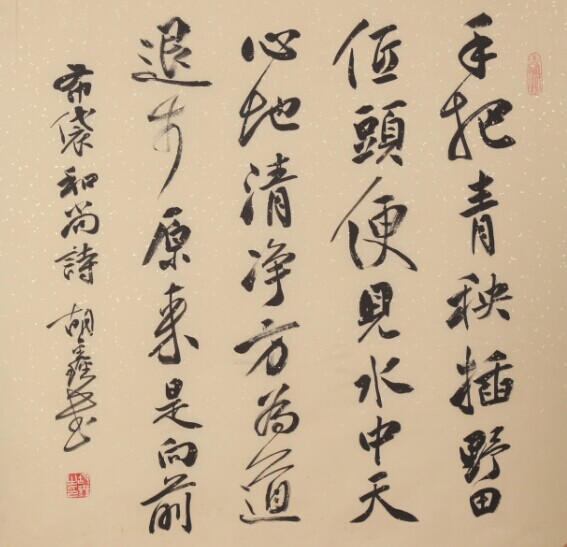 手把青秧插野田
低頭便見水中天
心地清净方為道
退步原来是向前
布袋和尚詩 胡鑫書